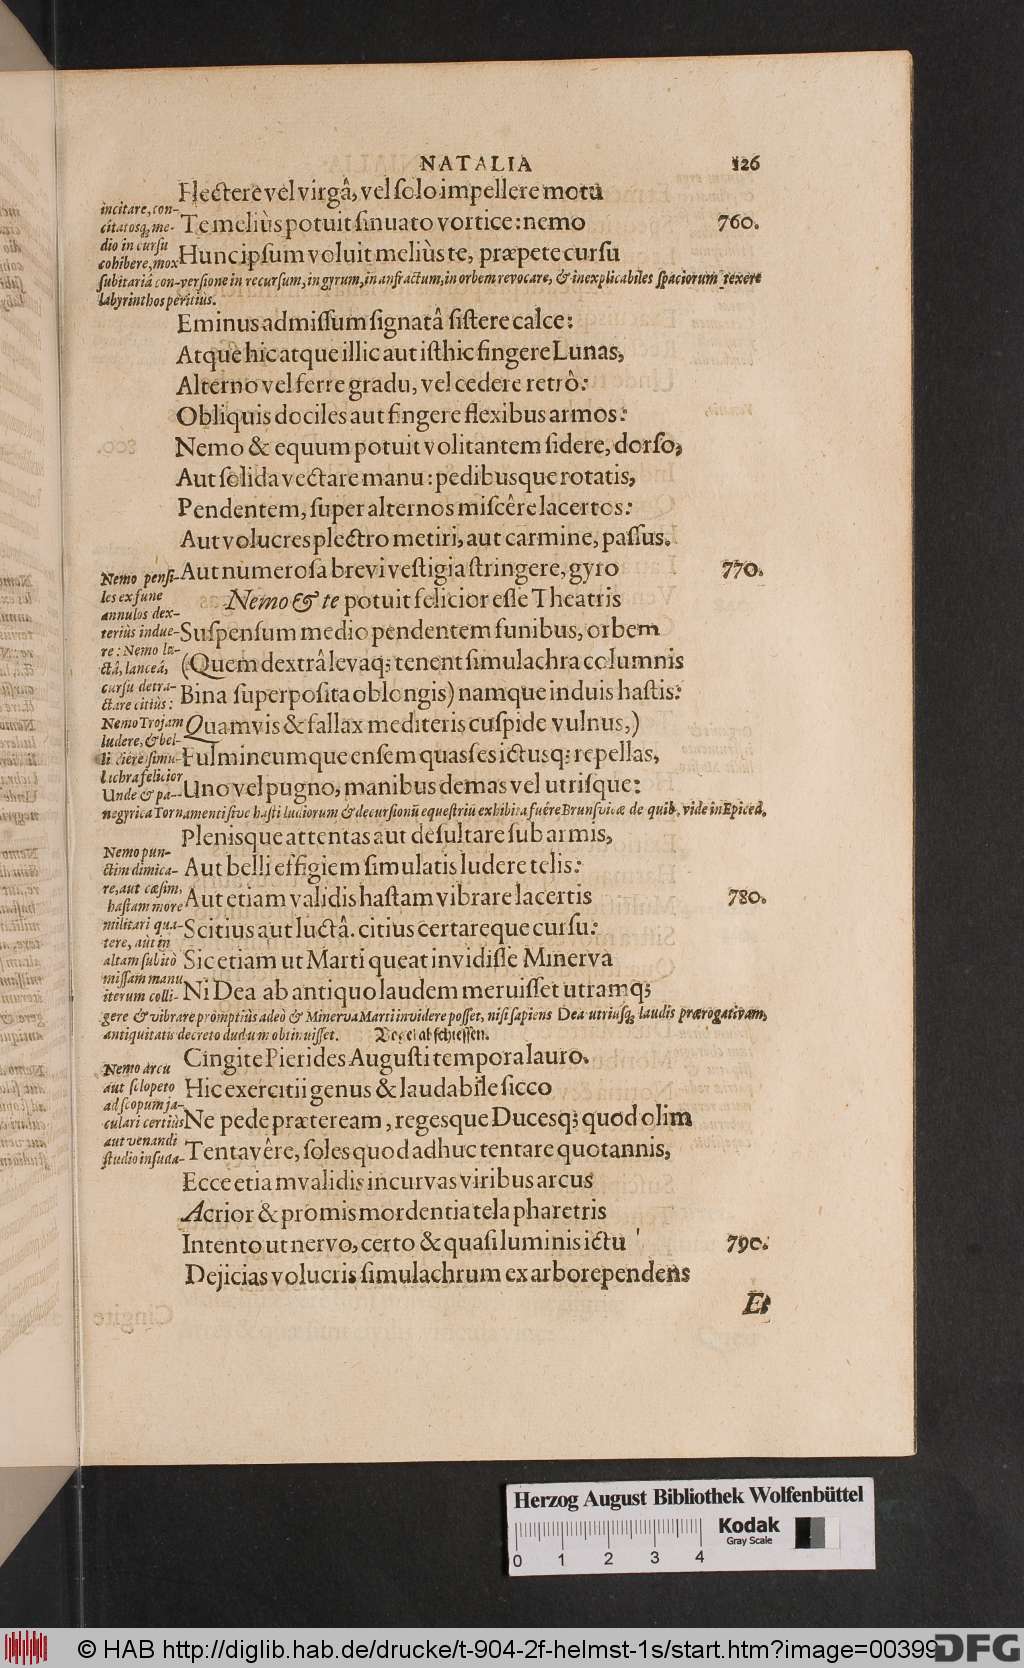 NATALIA 126
Flectere vel virgâ, vel ſolo impellere motu
incitare, con-
citatosq; me-
dio in curſu
cohibere, mox
Te meliùs potuit ſinuato vortice: nemo 760.
Hunc ipſum voluit meliùs te, præpete curſu
ſubitariâ con-verſione in recurſum, in gyrum, in anfractum, in orbem revocare, & inexplicabiles ſpaciorum texere
labyrinthos peritius.
Eminus admiſſum ſignatâ ſiſtere calce:
Atque hic atque illic aut iſthic fingere Lunas,
Alterno vel ferre gradu, vel cedere retrò:
Obliquis dociles aut fingere flexibus armos:
Nemo & equum potuit volitantem ſidere, dorſo,
Aut ſolida vectare manu: pedibusque rotatis,
Pendentem, ſuper alternos miſcêre lacertos:
Aut volucres plectro metiri, aut carmine, paſſus.
Aut numeroſa brevi veſtigia ſtringere, gyro 770.
Nemo & te potuit felicior eſſe Theatris
Suſpenſum medio pendentem funibus, orbem
(Quem dextrâ levaq; tenent ſimulachra columnis
Bina ſuperpoſita oblongis) namque induis haſtis:
Quamvis & fallax mediteris cuſpide vulnus,)
Fulmineumque enſem quaſſes ictusq; repellas,
Uno vel pugno, manibus demas vel utriſque:
Nemo penſi-
les ex fune
annulos dex-
teriùs indue-
re: Nemo læ-
ctâ, lanceâ,
curſu detra-
ctare citiùs:
Nemo Trojam
ludere, & bel-
li ciere ſimu-
lachra felicior
Unde & pa-
negyrica Tornamenti ſive haſti ludiorum & decurſionū equeſtriū exhibita fuêre Brunſvicæ de quib. vide in Epiced.
Plenisque attentas aut deſultare ſub armis,
Aut belli effigiem ſimulatis ludere telis:
Aut etiam validis haſtam vibrare lacertis 780.
Scitius aut luctâ. citius certareque curſu:
Sic etiam ut Marti queat invidiſſe Minerva
Ni Dea ab antiquo laudem meruiſſet utramq;
Nemo pun-
ctim dimica-
re, aut cæſim,
haſtam more
militari qua-
tere, aut in
altam ſubitò
miſſam manu
iterum colli-
gere & vibrare promptiùs adeò & Minerva Marti invidere poſſet, niſi ſapiens Dea utriuſq; laudis prærogativam,
antiquitatis decreto dudum obtinuiſſet. Vogel abſchieſſen.
Cingite Pierides Auguſti tempora lauro.
Hic exercitii genus & laudabile ſicco
Ne pede præteream, regesque Ducesq; quod olim
Tentavêre, ſoles quod adhuc tentare quotannis,
Nemo arcu
aut ſclopeto
ad ſcopum ja-
culari certiùs
aut venandi
ſtudio inſuda-
Ecce etiam validis incurvas viribus arcus
Acrior & promis mordentia tela pharetris
Intento ut nervo, certo & quaſi luminis ictu 790.
Dejicias volucris ſimulachrum ex arbore pendens
Et
Herzog August Bibliothek Wolfenbüttel
0 1 2 3 4
Kodak
Gray Scale
© HAB http://diglib.hab.de/drucke/t-904-2f-helmst-1s/start.htm?image=00399
DFG